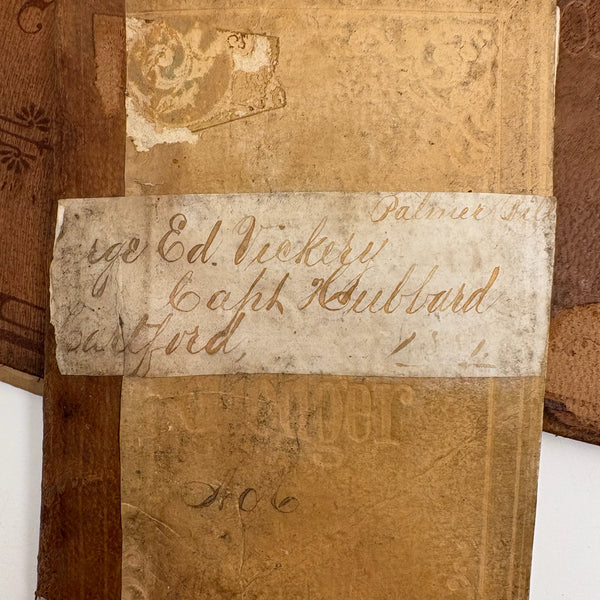 Palmer
rge Ed. Vickery
Capt Hubbard
Hartford,
No 6